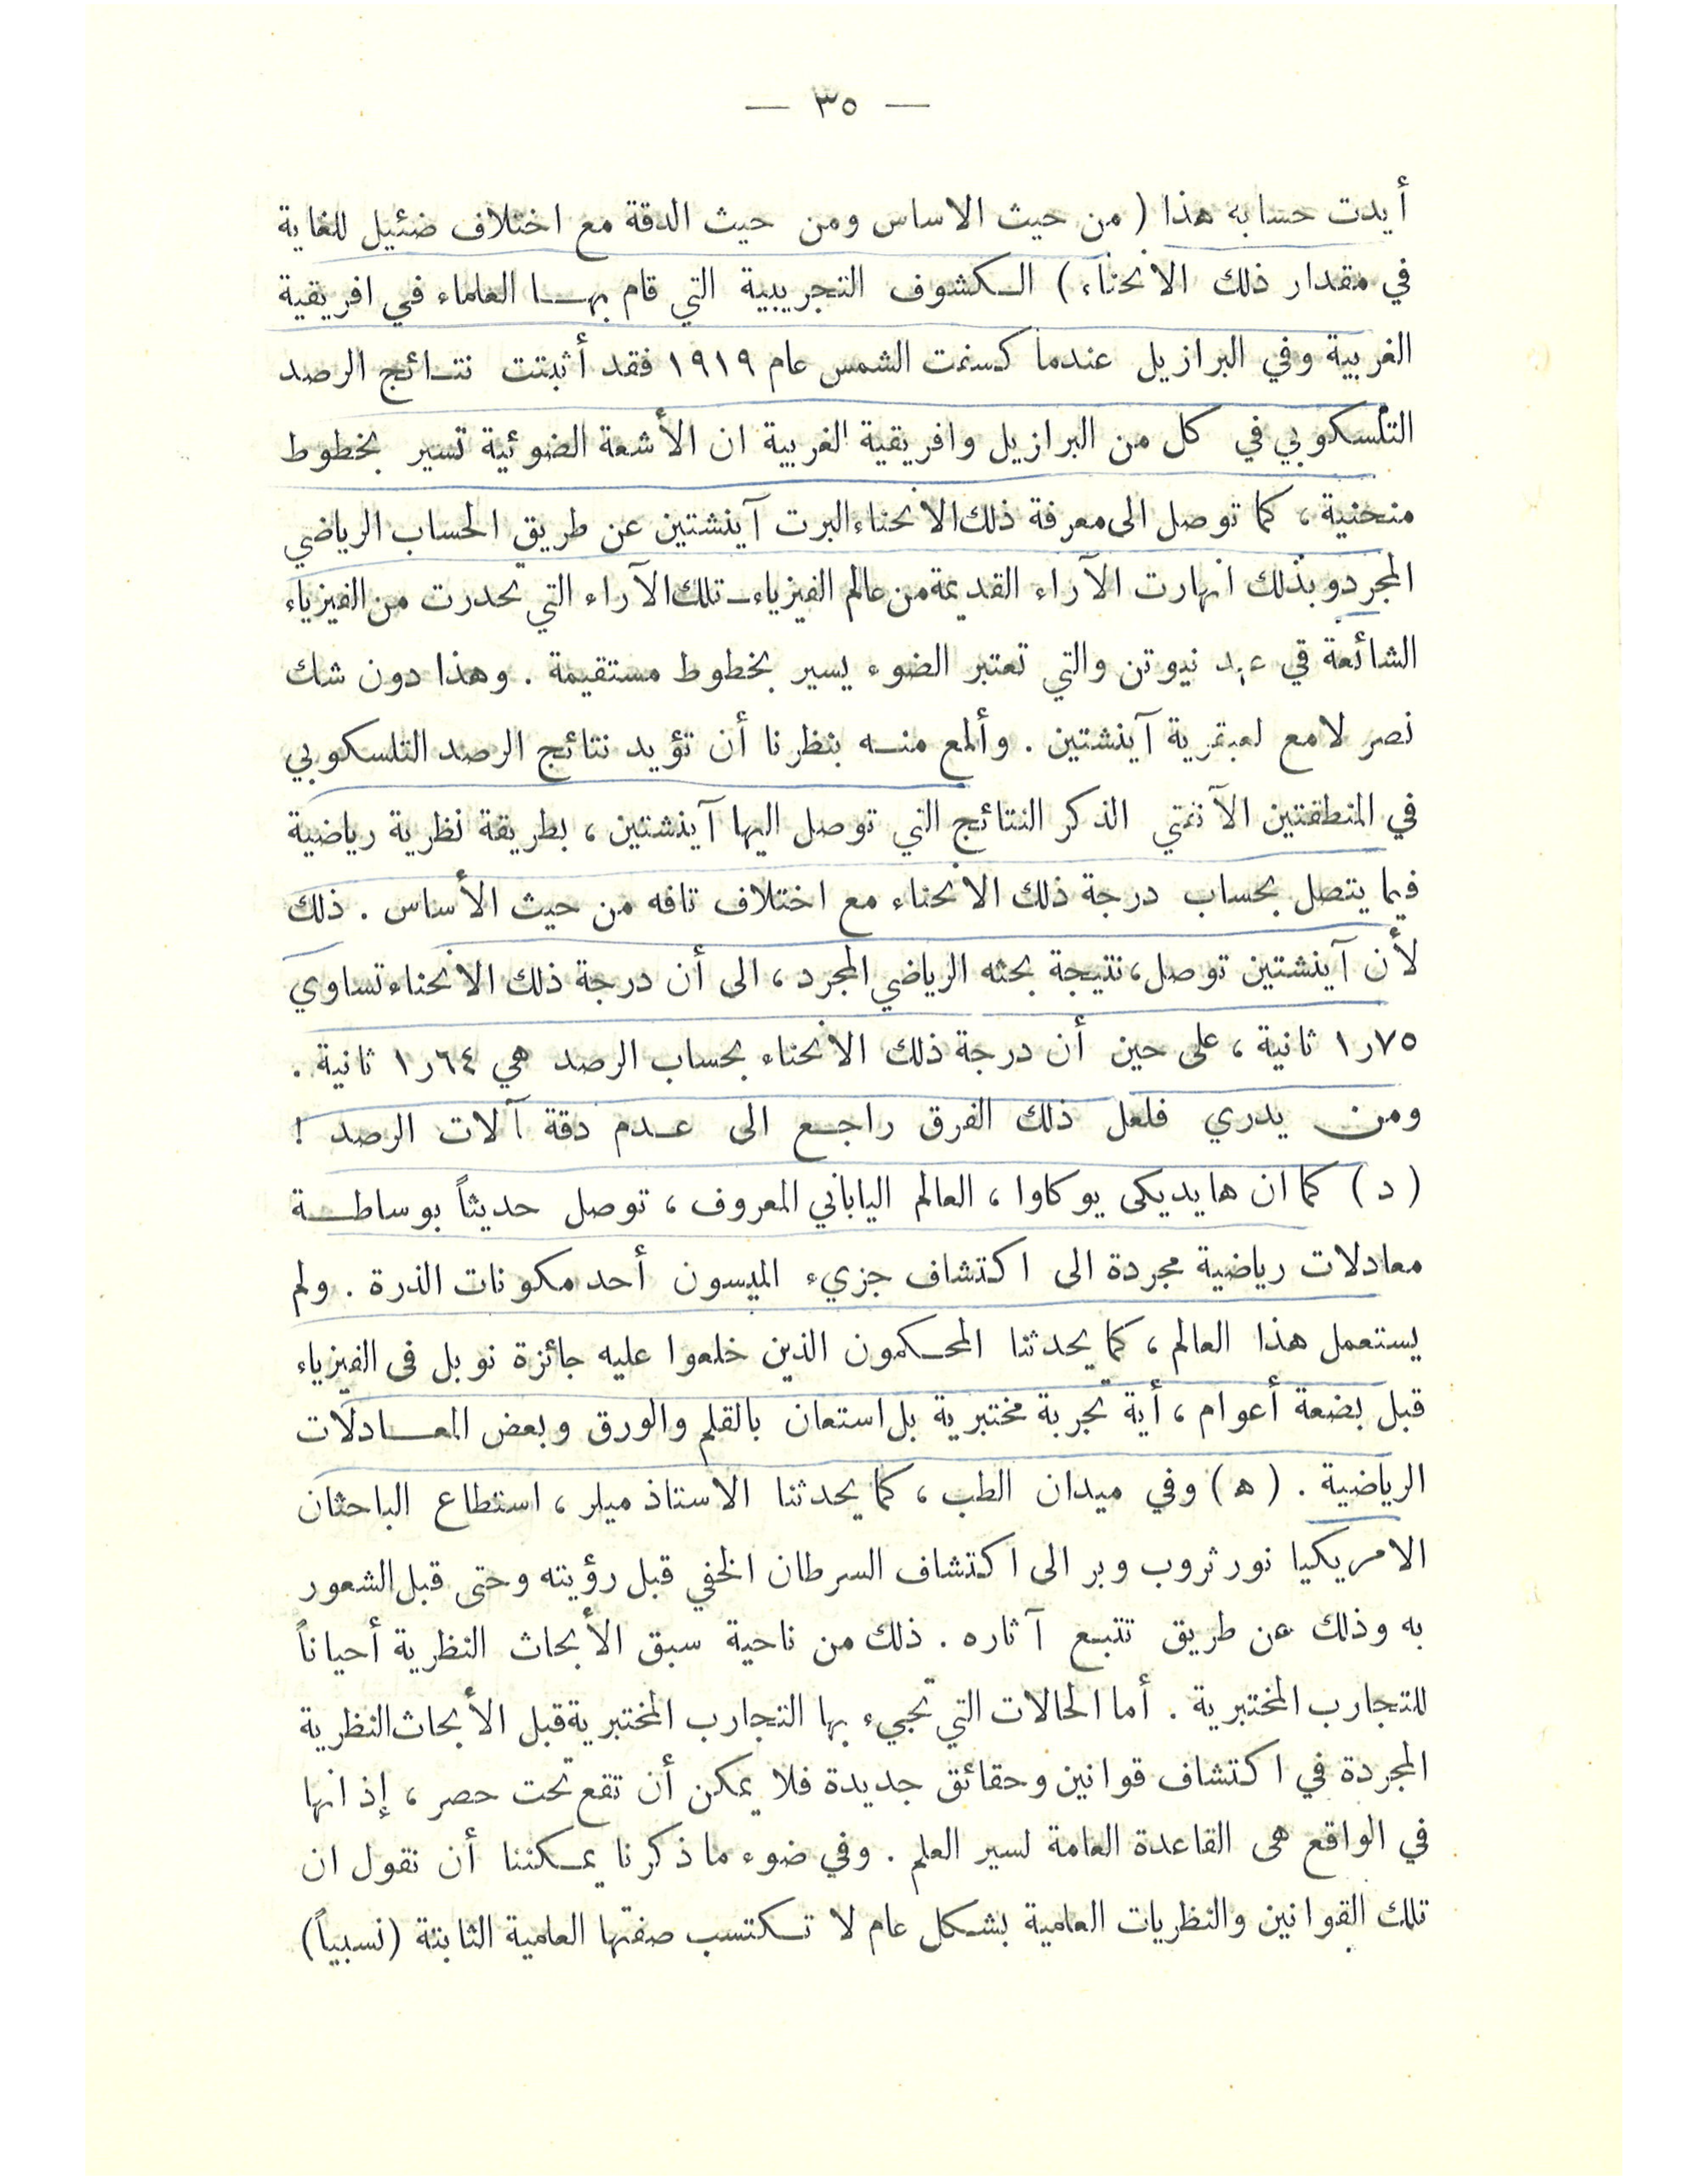 — ٣٥ —
أيدت حسابه هذا ( من حيث الاساس ومن حيث الدقة مع اختلاف ضئيل للغاية
في مقدار ذلك الانحناء ) الكشوف التجريبية التي قام بها العلماء في افريقية
الغربية وفي البرازيل عندما كسفت الشمس عام ١٩١٩ فقد أثبتت نتائج الرصد
التلسكوبي في كل من البرازيل وافريقية الغربية ان الأشعة الضوئية تسير بخطوط
منحنية ، كما توصل الى معرفة ذلك الانحناء البرت آينشتين عن طريق الحساب الرياضي
المجرد وبذلك انهارت الآراء القديمة من عالم الفيزياء ـ تلك الآراء التي تحدرت من الفيزياء
الشائعة في عهد نيوتن والتي تعتبر الضوء يسير بخطوط مستقيمة . وهذا دون شك
نصر لامع لعبقرية آينشتين . وألمع منه بنظرنا أن تؤيد نتائج الرصد التلسكوبي
في المنطقتين الآنفتي الذكر النتائج التي توصل اليها آينشتين ، بطريقة نظرية رياضية
فيما يتصل بحساب درجة ذلك الانحناء مع اختلاف تافه من حيث الأساس . ذلك
لأن آينشتين توصل ، نتيجة بحثه الرياضي المجرد ، الى أن درجة ذلك الانحناء تساوي
١٫٧٥ ثانية ، على حين أن درجة ذلك الانحناء بحساب الرصد هي ١٫٦٤ ثانية .
ومن يدري فلعل ذلك الفرق راجع الى عدم دقة آلات الرصد !
( د ) كما ان هايديكى يوكاوا ، العالم الياباني المعروف ، توصل حديثاً بوساطة
معادلات رياضية مجردة الى اكتشاف جزيء الميسون أحد مكونات الذرة . ولم
يستعمل هذا العالم ، كما يحدثنا المحكمون الذين خلعوا عليه جائزة نوبل فى الفيزياء
قبل بضعة أعوام ، أية تجربة مختبرية بل استعان بالقلم والورق وبعض المعادلات
الرياضية . ( ه ) وفي ميدان الطب ، كما يحدثنا الاستاذ ميلر ، استطاع الباحثان
الامريكيا نورثروب وبر الى اكتشاف السرطان الخفي قبل رؤيته وحتى قبل الشعور
به وذلك عن طريق تتبع آثاره . ذلك من ناحية سبق الأبحاث النظرية أحياناً
للتجارب المختبرية . أما الحالات التي تجيء بها التجارب المختبرية قبل الأبحاث النظرية
المجردة في اكتشاف قوانين وحقائق جديدة فلا يمكن أن تقع تحت حصر ، إذ انها
في الواقع هى القاعدة العامة لسير العلم . وفي ضوء ما ذكرنا يمكننا أن نقول ان
تلك القوانين والنظريات العلمية بشكل عام لا تكتسب صفتها العلمية الثابتة (نسبياً)